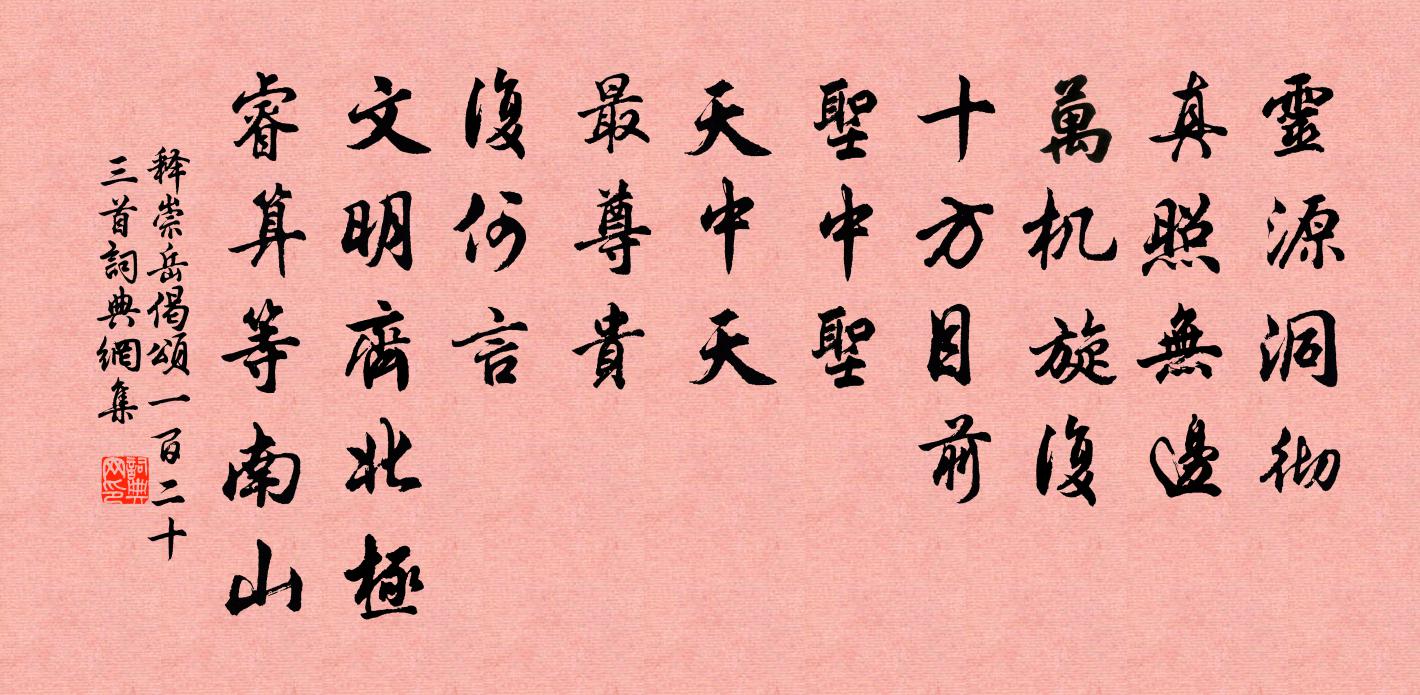 靈源洞彻
真照無邊
萬机旋復
十方目前
聖中聖
天中天
最尊貴
復何言
文明齊北極
睿算等南山
释崇岳偈頌一百二十
三首詞典網集
詞典
网印